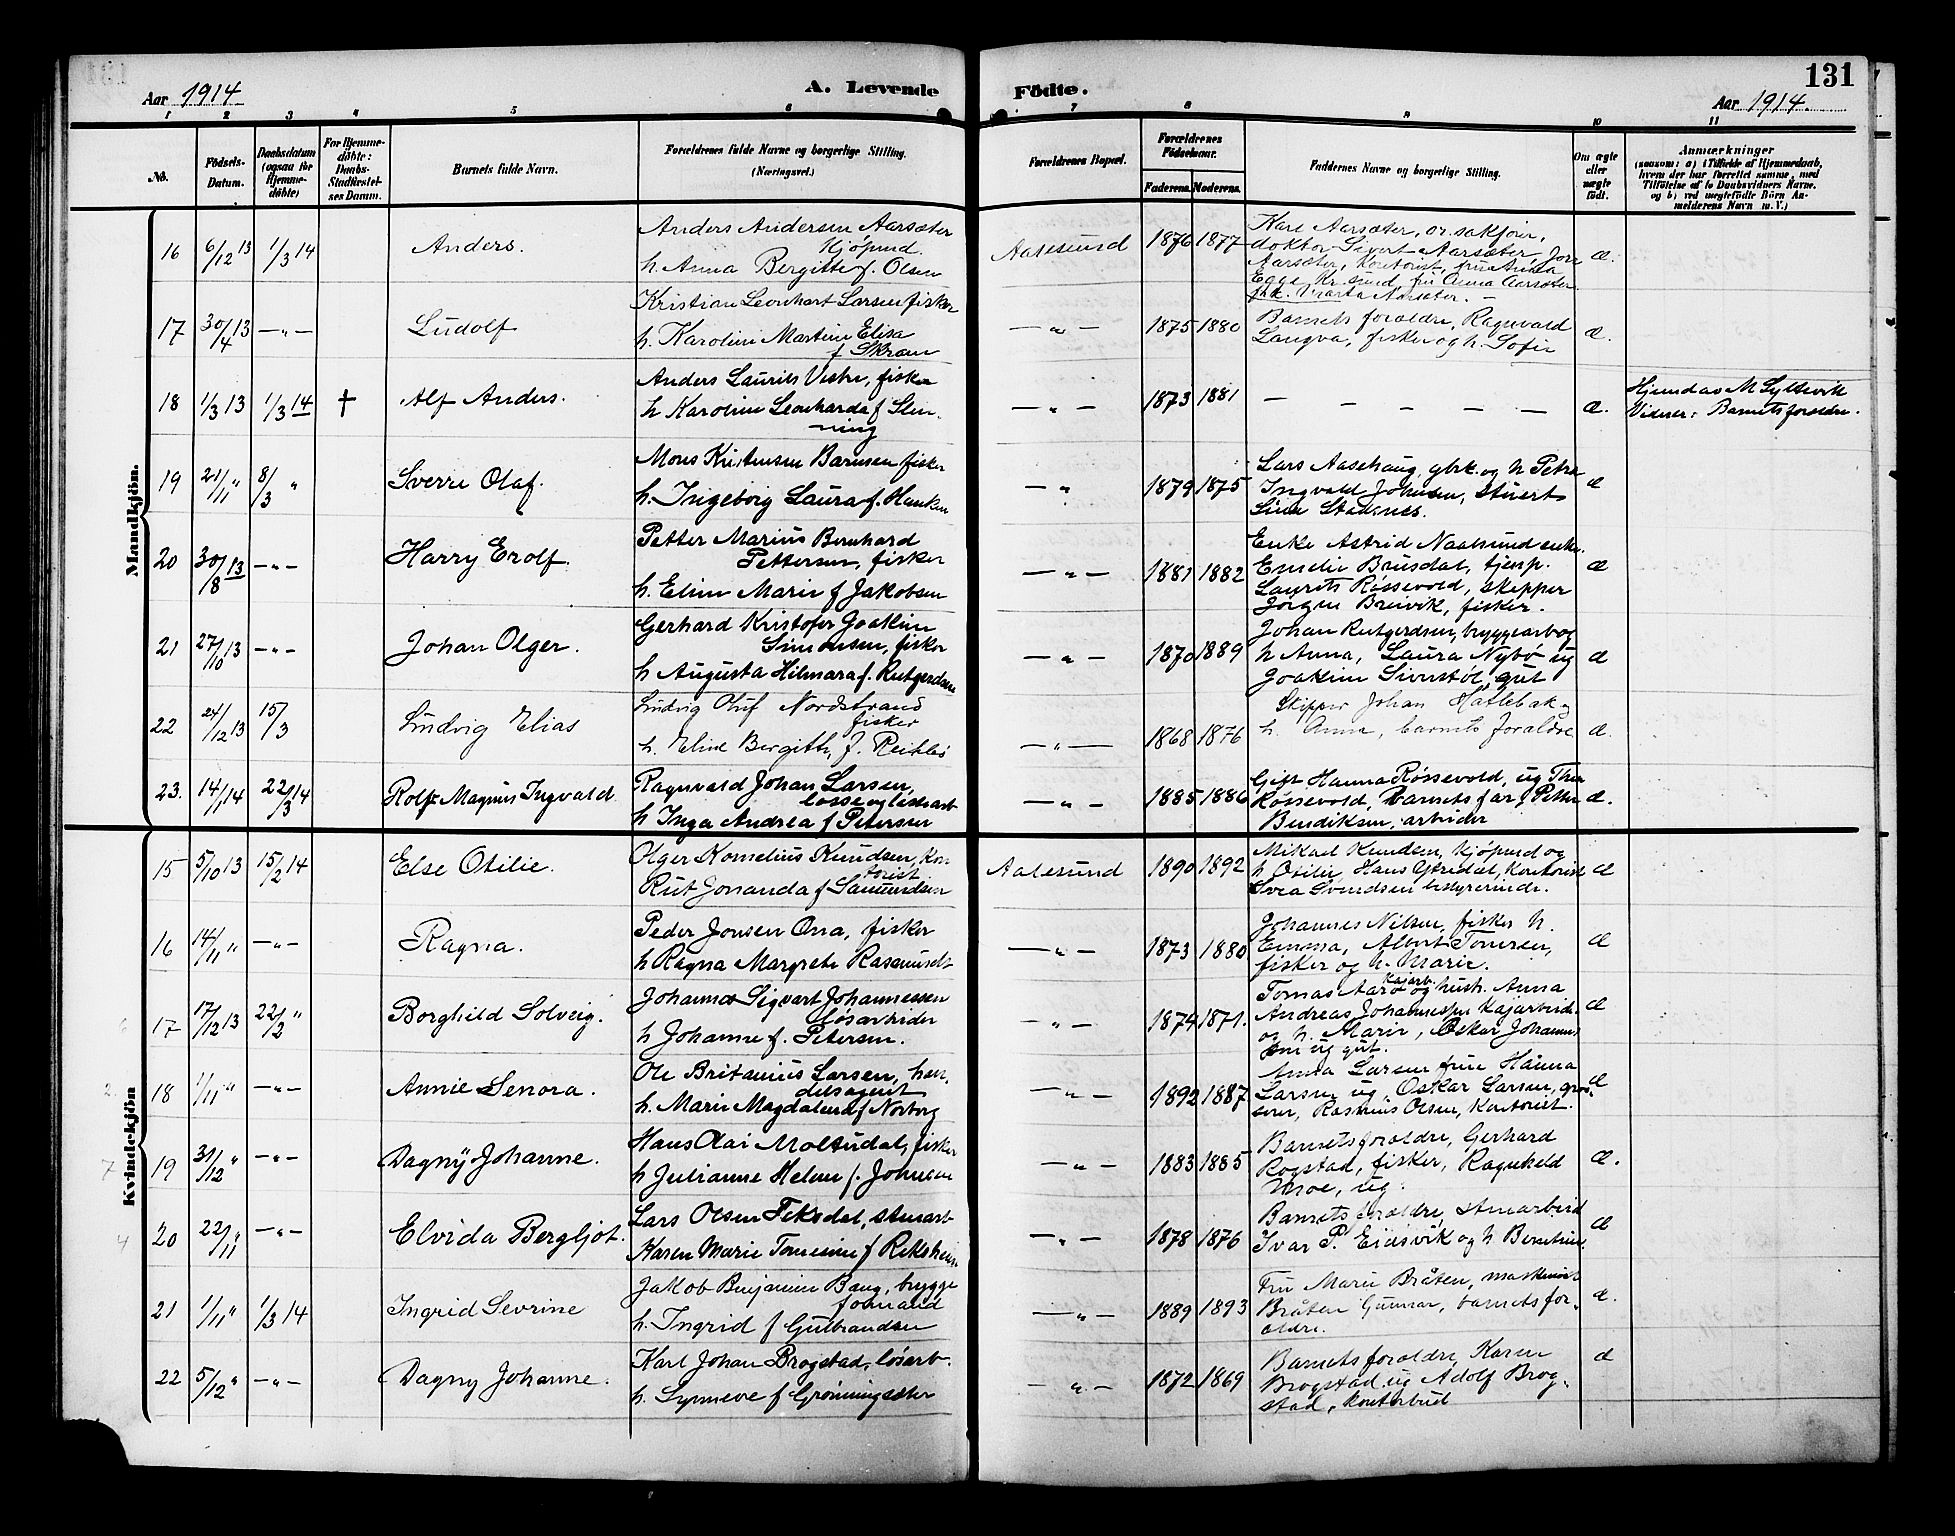 131
Aar 1914 A. Levende Födte. Aar 1914.
1 2 3 4 5 6 7 8 9 10 11
No.
Födsels-Datum.
Daabsdatum (ogsaa for Hjemme-döbte)
For Hjemme-döbte: Daabs-Stadfæstel-ses Datum.
Barnets fulde Navn.
Forældrenes fulde Navne og borgerlige Stilling. (Næringsvei.)
Forældrenes Bopæl.
Forældrenes Födselsaar.
Faderens. Moderens.
Faddernes Navne og borgerlige Stilling.
Om ægte eller uægte födt.
Anmærkninger
(saasom: a) i Tilfælde af Hjemmedaab,
hvem der har forrettet samme, med
Tilföielse af to Daabsvidners Navne,
og b) ved uægtefödte Börn An-
melderens Navn m. V.)
Mandkjön.
16 6/12 13 1/3 14 Anders.
Anders Andersen Aarsæter
Kjøpmd.
h. Anna Bergitte f. Olsen
Aalesund 1876 1877
Kare Aarsæter, or. sakfører,
doktor Sivert Aarsæter,
Aarsæter, Kontorist, fru Anna
Egge, Kr.sund, fru Anna Aarsæter
frk. Marta Aarsæter. —
æ.
17 30/4 13 — „ — Ludolf
Kristian Leonhart Larsen fisker
h. Karoline Martine Elisa
f Skram
— „ — 1875 1880
Barnets foraldre, Ragnvald
Langva, fisker og h. Sofie
æ.
18 1/3 13 1/3 14 † Alf Anders.
Anders Laurits Vestre, fisker
h Karoline Leonharda f Slin-
ning
— „ — 1873 1881 — — — — — æ.
Hjemd av M Sylteevik
Vidner: Barnets foraldre.
19 21/11 „ 8/3 „ Sverre Olaf.
Mons Kristensen Barmen fisker
h. Ingeborg Laura f. Hanken
— „ 1879 1875
Lars Aasehaug, gbrk. og h Petra
Ingvald Johnsen, stuert
Sina Stadsnes.
æ
20 30/8 13 — „ — Harry Erolf.
Petter Marius Bernhard
Pettersen, fisker
h. Eline Marie f Jakobsen
— „ — 1881 1882
Enke Astrid Naalsund enke.
Emelie Brusdal, tjenp.
Laurits Røssevold, skipper
Jörgen Breivik, fisker.
æ
21 27/10 13 — „ — Johan Olger.
Gerhard Kristofer Joakim
Simonsen, fisker
h Augusta Hilmara f. Rutgerdsen
— „ — 1870 1889
Johan Rutgerdsen, bryggearb og
h Anna, Laura Nybø ug
Joakim Siverstøl, gut
æ
22 24/12 13 15/3 Ludvig Elias
Ludvig Oluf Nordstrand
fisker
h. Eline Bergithe, f.
— „ — 1868 1876
Skipper Johan Hatlebak og
h. Anna, barnets foraldre
æ.
23. 14/1 14 22/3 14 Rolf Magnus Ingvald
Ragnvald Johan Larsen,
losse og lastearb
h Inga Andrea f Petersen
— „ — 1885 1886
Gift Hanna Røssevold, ug Thea
Røssevold, barnets far, Petter
Bendiksen, arbeider
æ.
Kvindekjön
15 5/10 13 15/2 14 Else Otilie.
Olger Kornelius Knudsen, Kon
torist
Rut Jonanda f Samuelsen
Aalesund 1890 1892
Mikael Knudsen, Kjøpmd og
h Otilie, Hans Ytredal, Kontorist
Svea Svendsen bestyrerinde.
æ
16 14/11 „ — „ — Ragna.
Peder Jonsen Ona, fisker
h Ragna Margrete Rasmusdt
— „ — 1873 1880
Johannes Nilsen, fisker h.
Emma, Albert Tomesen,
fisker og h. Marie.
æ
17 17/12 13 22/2 „ Borghild Solveig.
Johannes Sigvart Johannessen
løsarbeider
h Johanne f. Petersen.
— „ — 1874 1871.
Tomas Aarø Kajarb. og hustr. Anna
Andreas Johannessen Kajarbeid.
og h. Marie, Oskar Johannes
sen ug gut.
æ
18 1/11 „ — „ — Annie Lenora.
Ole Britanius Larsen, han,
delsagent
h. Marie Magdalena f Norborg
— „ — 1892 1887.
Anna Larsen frue Hanna
Larsen ug, Oskar Larsen, gros
serer, Rasmus Olsen, Kontorist.
æ
19 31/12 „ — „ — Dagny Johanne.
Hans Olai Moltudal, fisker
h Julianne Helene f. Johnsen
— „ — 1883 1885
Barnets foraldre, Gerhard
Rogstad, fisker, Ragnhild
Moe, ug.
æ.
20 22/11 „ — „ — Elvida Bergljot.
Lars Olsen Fiksdal, stenarb
Karen Marie Tomesine f Reksheim
— „ — 1878 1876
Barnets foraldre, stenarbeid
Ivar P. Eidsvik og h. Berntine.
æ
21 1/11 „ 1/3 14 Ingrid Sevrine
Jakob Benjamin Bang, brygge
formand
h. Ingrid f Gulbrandsen
— „ — 1889 1893
Fru Marie Bråten, maskinist
Bråten Gunnar, barnets for-
ældre.
æ.
22 5/12 „ — „ — Dagny Johanne.
Karl Johan Brogstad, løsarb.
h. Synneve f Grønningsæter
— „ — 1872 1869
Barnets foraldre, Karen
Brogstad ug Adolf Brog-
stad, kontorbud
æ